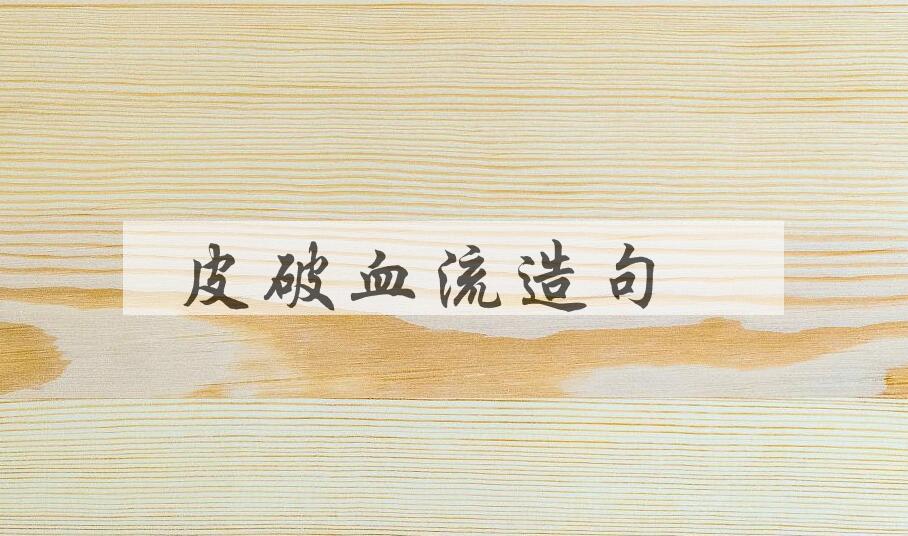 皮破血流造句